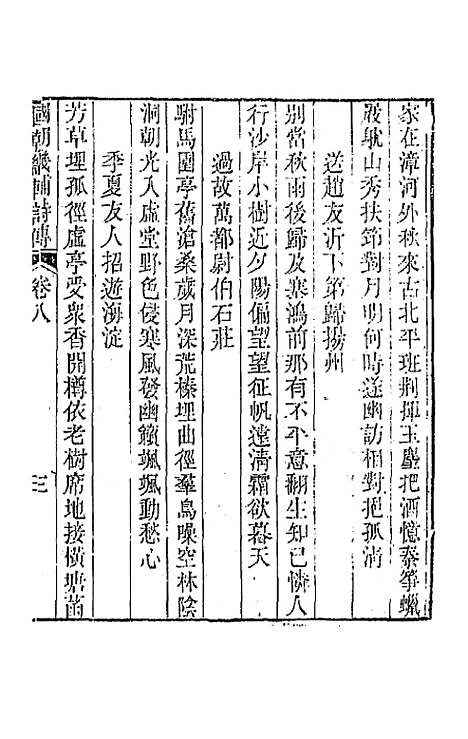 家在漳河外秋來古北平班荆揮玉麈把酒憶秦箏蠟
屐躭山秀扶筇對月明何時遂幽訪相對挹孤清
送趙友沂下第歸揚州
別當秋雨後歸及塞鴻前那有不平意翻生知已憐人
行沙岸小樹近夕陽偏望望征帆遠淸霜欲暮天
過故萬都尉伯石莊
駙馬園亭舊滄桑歲月深荒榛埋曲徑羣鳥噪空林陰
洞朝光入虛堂野色侵寒風發幽籟颯颯動愁心
季夏友人招遊海淀
芳草埋孤徑虛亭受衆香開樽依老樹席地接橫塘菡
國朝畿輔詩傳 卷八 三